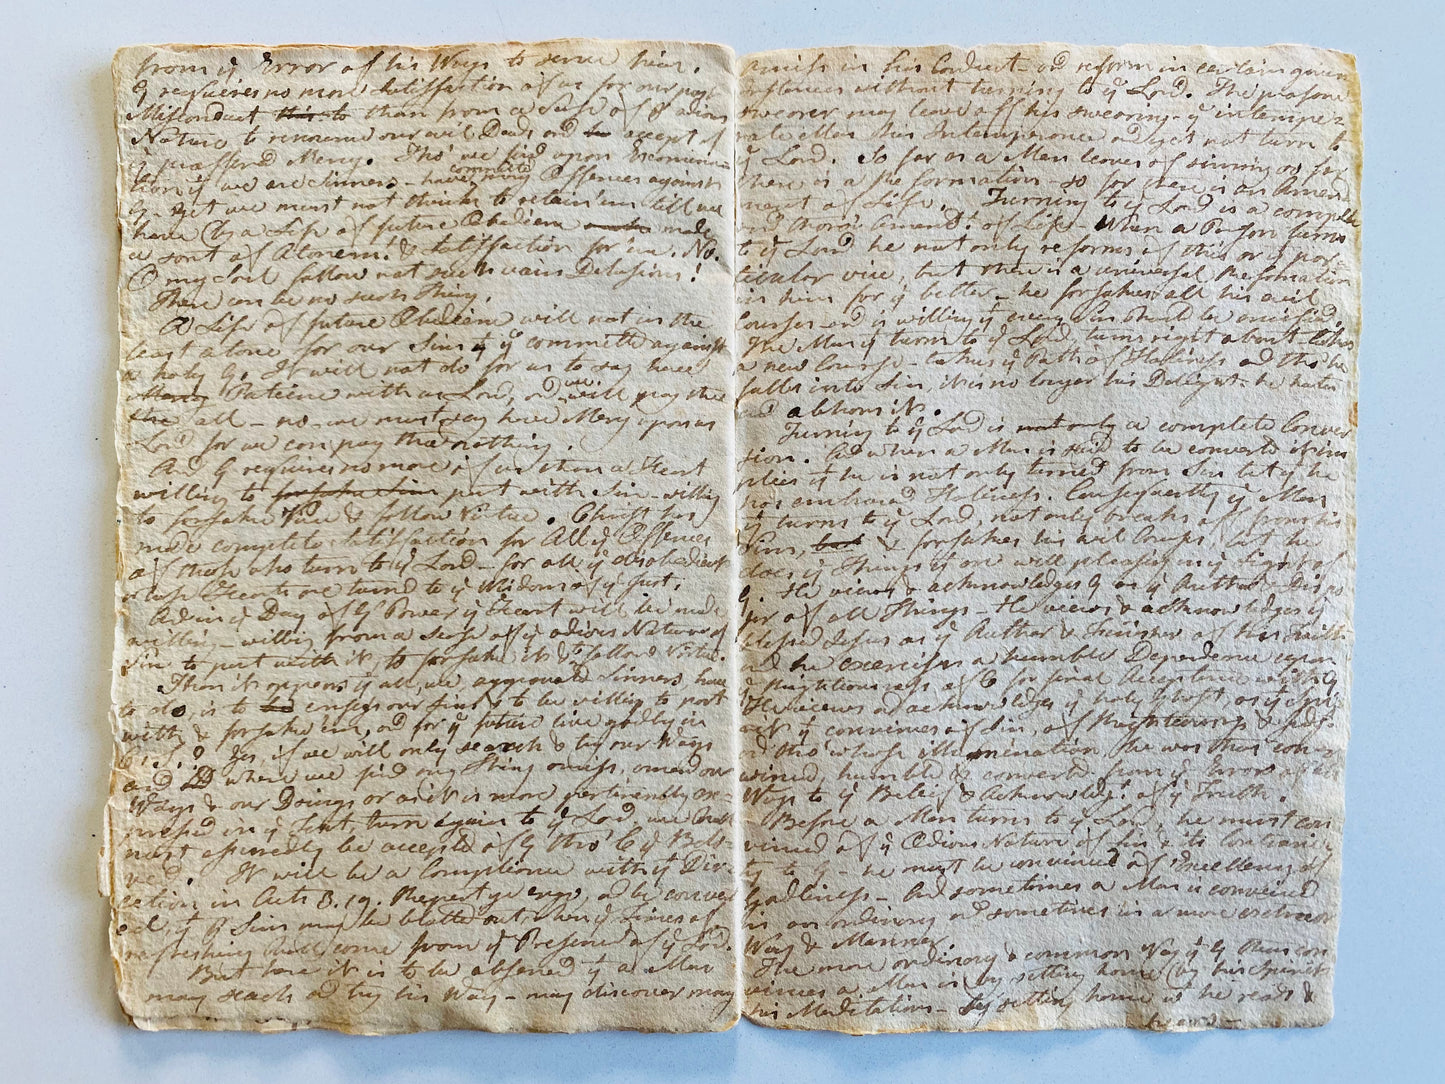 from ye Error of his Ways to serve him.
G requires no more Satisffaction of us for our past
Misconduct than from a Sense of ye odious
Nature to renounce our evil Deeds and accept of
profferd Mercy. Tho' we find upon Examina
tion yt we are Sinners - have committed Offences against
G - yet we must not think to retain 'em till we
have by a Life of future Obedience made
a sort of Atonemt. & Satisffaction for 'em. No.
O my Soul fallow not such vain Delusions!
There can be no such Thing.
A Life of future Obedience will not in the
least atone for our Sins yt committed against
a holy G. It will not do for us to say have
Patience with us Lord, and we will pay thee
all - no - we must say have Mercy upon us
Lord for we can pay thee nothing.
And G requires no more of us than a Heart
willing to part with Sin - willing
to forsake Vice & follow Virtue. Christ has
made complete Satisffaction for All ye Offences
of those who turn to ye Lord - for all ye disobedient
whose Hearts are turnd to ye Wisdom of ye Just.
And in ye Day of G's Power ye Heart will be made
willing - willing from a Sense of ye odious Nature of
Sin to part with it, to forsake it & to follow Virtue.
Then it appears yt all, we approved Sinners have
to do, is to confess our Sins & to be willing to part
with & forsake 'em, and for ye future live godly in
Yes, if we will only search & try our Ways
and where we find any Thing amiss, amend our
Ways & our Doings or as it is more pertinently ex-
pressed in ye Text turn again to ye Lord, we
most assuredly be accepted of G thro' C ye Belo-
ved. It will be a Compliance with ye Dir-
ection in Acts 3. 19. Repent ye ergo, and be convert
ed, yt yr Sins may be blotted out when ye Times of
refreshing shall come from ye Presence of ye Lord.
But here it is to be observed yt a Man
may seach and try his Way - may discover many
amiss in his Conduct and reform in certain
instances without turning to ye Lord. The profane
swearer may leave off his swearing - ye intemper
ate Man his Intemperance and yet not turn to
ye Lord. So far as a Man leaves of sinning so far
there is a Reformation - so far there is an Amend
ment of Life. Turning to ye Lord is a complete
and thoro' amendt. of Life - When a Person turns
to ye Lord he not only reforms of this or yt par-
ticular vice, but there is a universal Reformation
in him for ye better - he forsakes all his evil
Courses - and is willing yt every Lust should be crucified.
The Man yt turns to ye Lord, turns right about - takes
a new Course - takes ye Path of Holiness and tho' he
falls into Sin, it is no longer his Delight - he hates
and abhors it.
Turning to ye Lord is not only a complete Conver
sion. And when a Man is said to be converted it im
plies yt he is not only turned from Sin but yt he
has embraced Holiness. Consequently ye Man
yt turns to ye Lord, not only breaks off from his
Sins, & forsakes his evil Courses, but he
does ye Things yt are well pleasing in ye Sight of
G. He views & acknowledges G as ye Author & Dispo
ser of all Things - He views & acknowledges ye
blessed Jesus as ye Author & Finisher of his Faith
and he exercises a humble Dependence upon
ye Righteousness of C for final Acceptance with G
He views and acknowledges ye holy Ghost, as ye Spir
it yt convinces of Sin, of Righteousness & Judgt
and thro whose illumination, he was thus con
vinced, humbled & converted from ye Error of his
Ways to ye Belief & Acknowledgt of ye Truth.
Before a Man turns to ye Lord, he must con
vinced of ye Odious Nature of Sin & its Contrarie
ty to G - he must be convinced of Excellency of
Godliness - And sometimes a Man is convinced
in an ordinary and sometimes in a more extraor
Way & Manner.
The more ordinary & common Way yt G thus con
vinces a Man is by setting home by his Spirit
his Meditations - by setting home wt he reads &
hears -